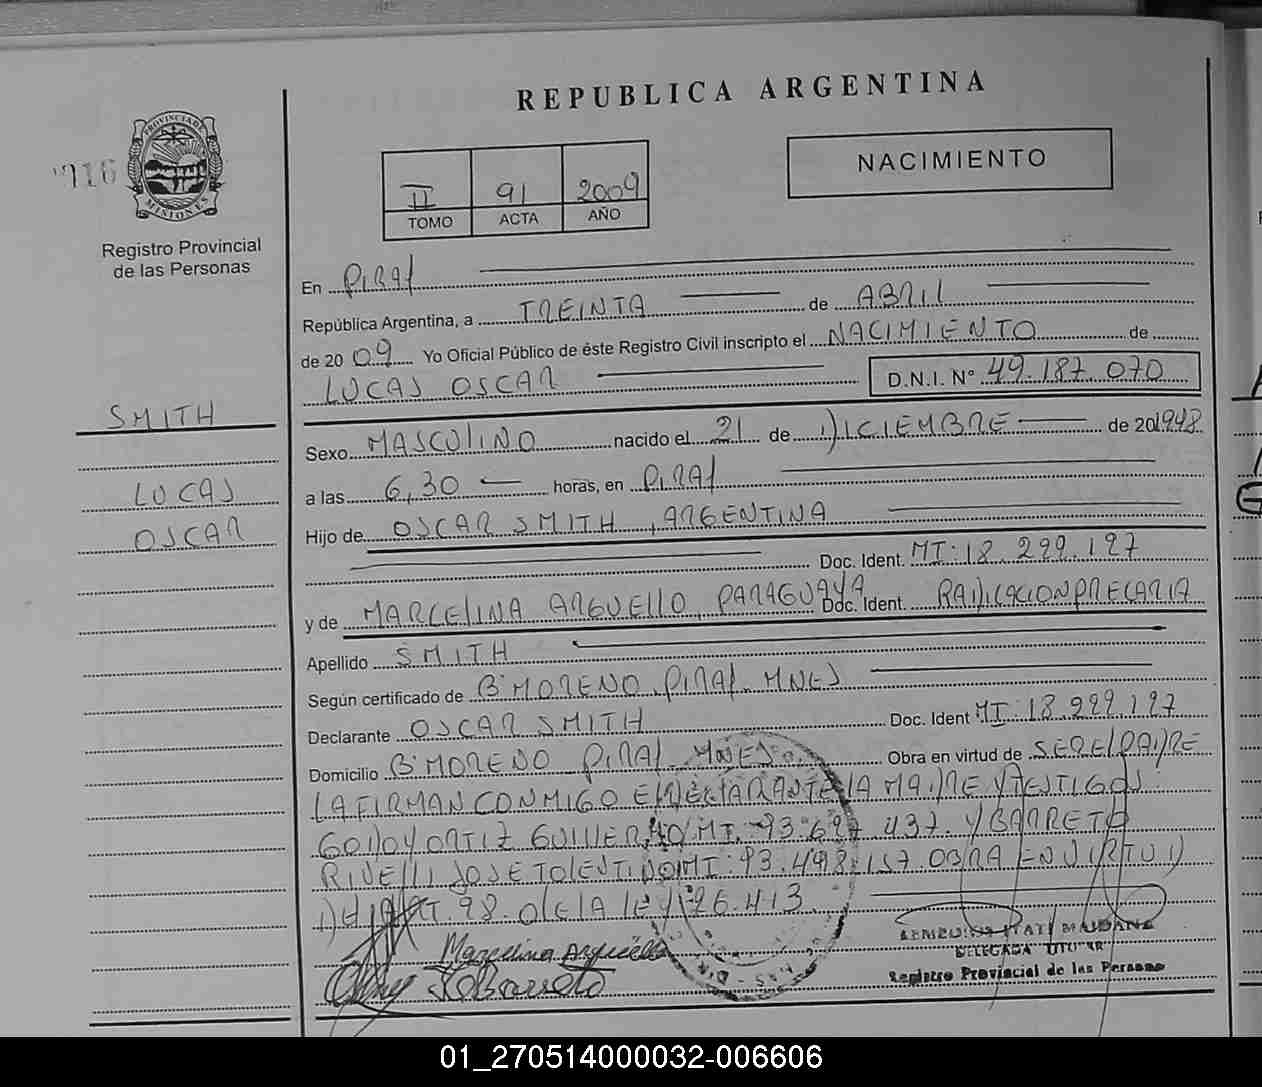 REPUBLICA ARGENTINA
PROVINCIA DE
MISIONES
Registro Provincial
de las Personas
II 91 2009
TOMO ACTA AÑO
NACIMIENTO
En PIRAY
República Argentina, a TREINTA de ABRIL
de 2009 Yo Oficial Público de éste Registro Civil inscripto el NACIMIENTO de
LUCAS OSCAR D.N.I. Nº 49.187.070
SMITH
LUCAS
OSCAR
Sexo MASCULINO nacido el 21 de DICIEMBRE de 201948
a las 6,30 horas, en PIRAY
Hijo de OSCAR SMITH, ARGENTINA
Doc. Ident. MI:18.299.127
y de MARCELINA ARGUELLO, PARAGUAYA Doc. Ident. RADICACION PRECARIA
Apellido SMITH
Según certificado de Bº MORENO. PIRAY. MNES
Declarante OSCAR SMITH Doc. Ident MI:18.299.127
Domicilio Bº MORENO PIRAY. MNES. Obra en virtud de SER EL PADRE
LA FIRMAN CONMIGO EL DECLARANTE LA MADRE Y TESTIGOS:
GODOY ORTIZ GUILLERMO MI:93.697.437. Y BARRETO
RIVELLI JOSE TOLENTINO MI:93.498.157. OBRA EN VIRTUD
DEL ART. 98. DE LA LEY 26.413
Marcelina Arguello
J Barreto
DELEGADA TITULAR
Registro Provincial de las Personas
01_270514000032-006606